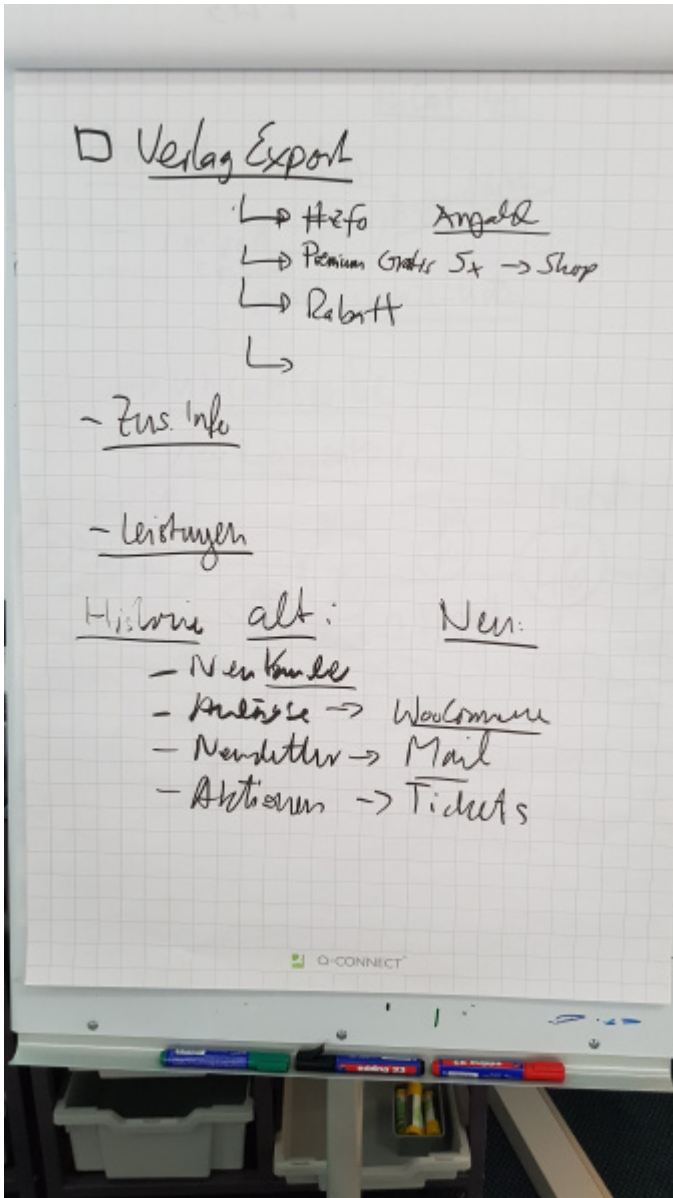 □ Verlag Export
Anzahl
Premium Gratis 5x → Shop
Rabatt
- Zus. Info
- Leistungen
Historie alt: Neu:
- Neukunde
→ WooCommerce
- Newsletter → Mail
- Aktionen → Tickets
Q-CONNECT
edding 33